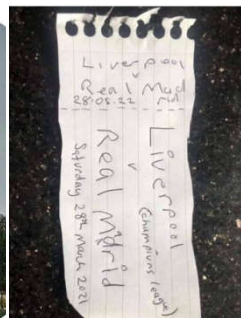 Liverpool
v
Real Mad
rid
28.05.22
Liverpool
(Champions league)
v
Real Madrid
Saturday 28th March 2021